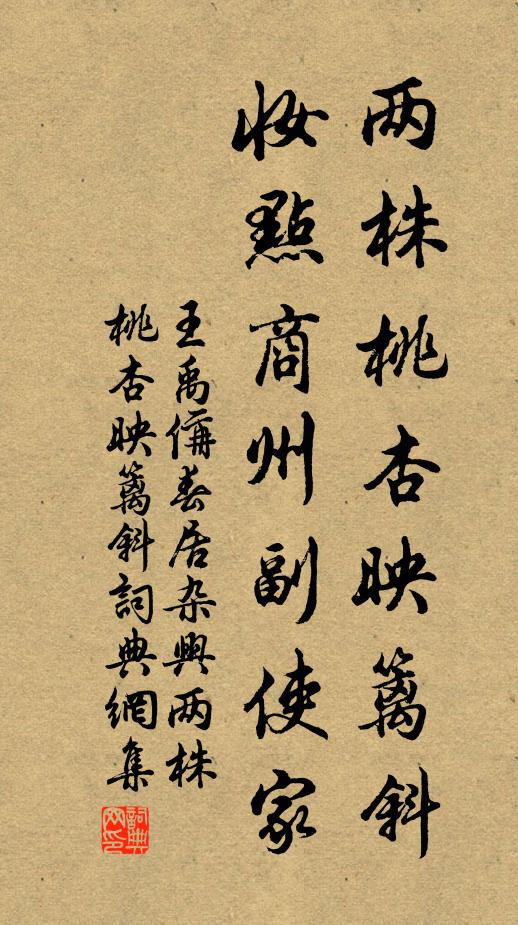 两株桃杏映篱斜
妆點商州副使家
王禹偁春居杂興两株
桃杏映篱斜詞典網集
詞典网印